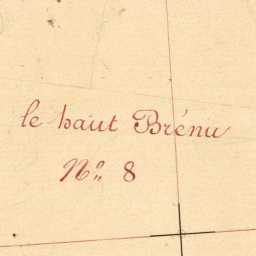 le haut Brénu
N° 8